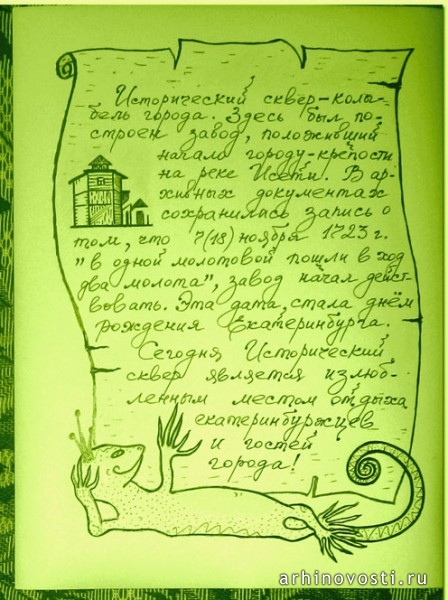 Исторический сквер-колы-
бель города. Здесь был по-
строен завод, положивший
начало городу-крепости
на реке Исети. В ар-
хивных документах
сохранилась запись о
том, что 7(18) ноября 1723 г.
"в одной молотовой пошли в ход
два молота", завод начал дейст-
вовать. Эта дата стала днём
рождения Екатеринбурга.
Сегодня Исторический
сквер является излюб-
ленным местом отдыха
екатеринбуржцев
и гостей
города!
arhinovosti.ru